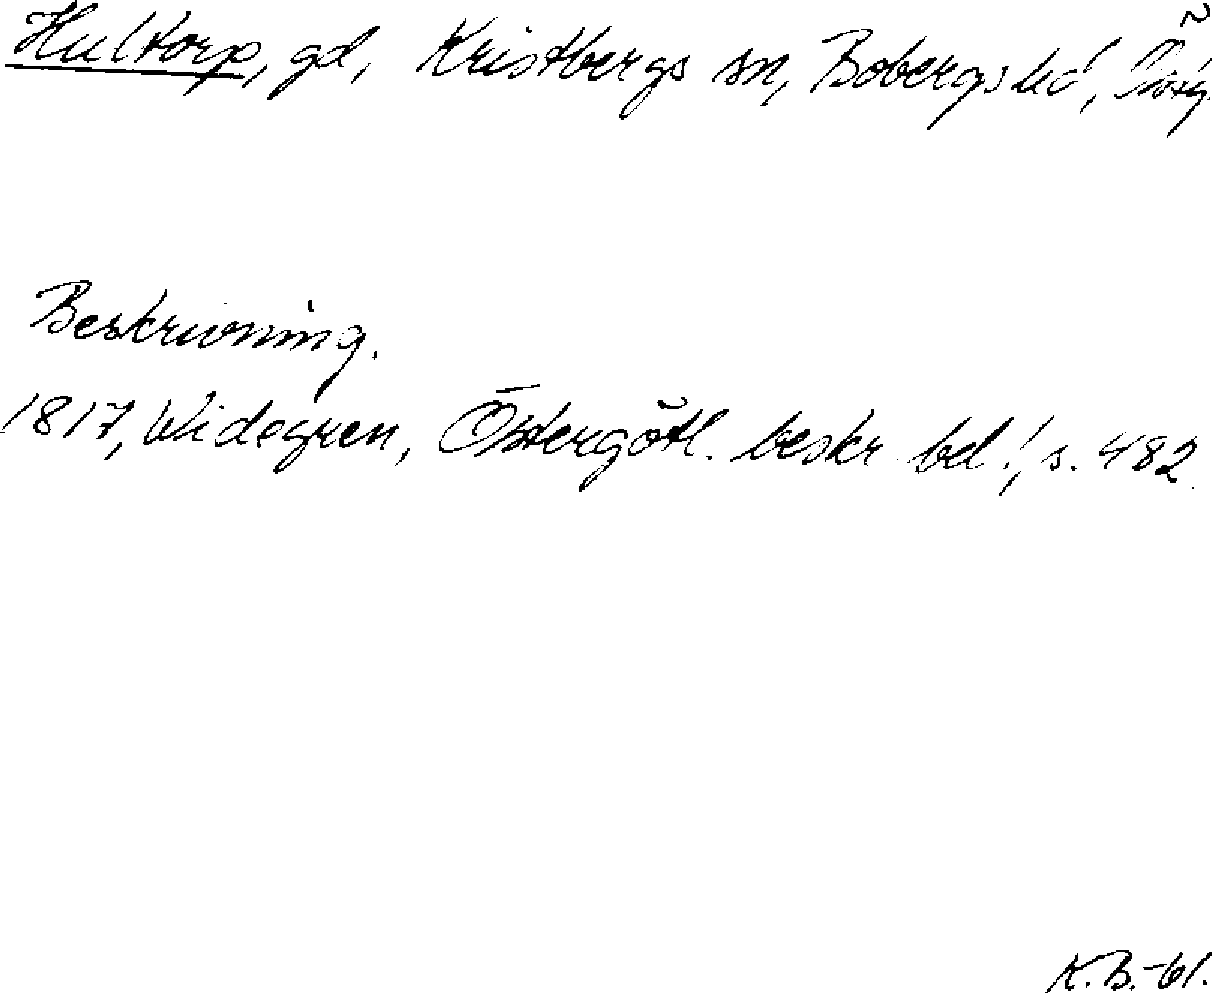 Hultorp, gd, Kristbergs sn, Bobergs hd, Östg.
Beskrivning.
1817, Widegren, Östergötl. beskr. bd 1, s. 482.
K.B.-61.